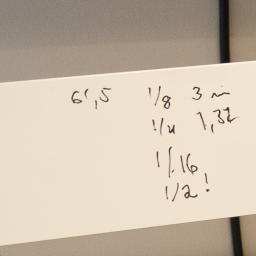 61,5 1/8 3 m
1/4 1,32
1/.16
1/2!